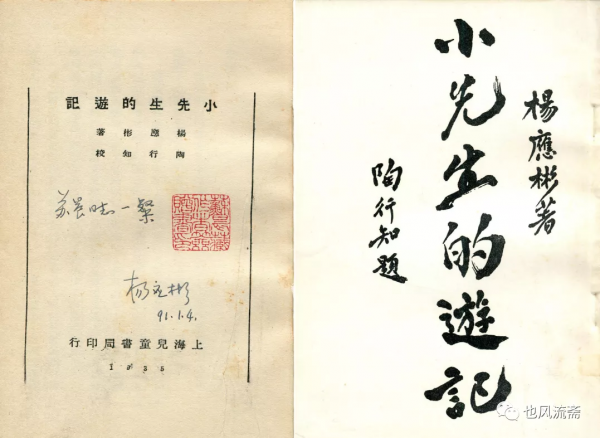 小先生的遊記
楊應彬著
陶行知校
苏晨 一粲
杨应彬
91.1.4.
上海兒童書局印行
1935
楊應彬著
小先生的遊記
陶行知題
也风流斋